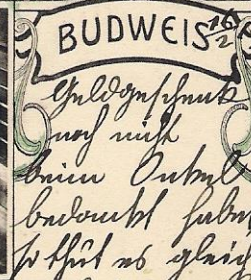 BUDWEIS 16/2
Geldgeschenk
noch nicht
beim Onkel
bedankt habe
so thut es glei